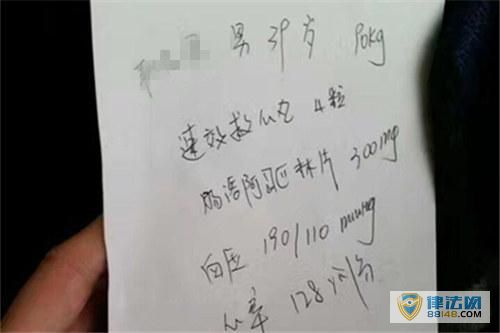 男 39岁 90kg
速效救心丸 4粒
肠溶阿司匹林片 300mg
血压 190/110 mmHg
心率 128次/分
律法网
88148.com